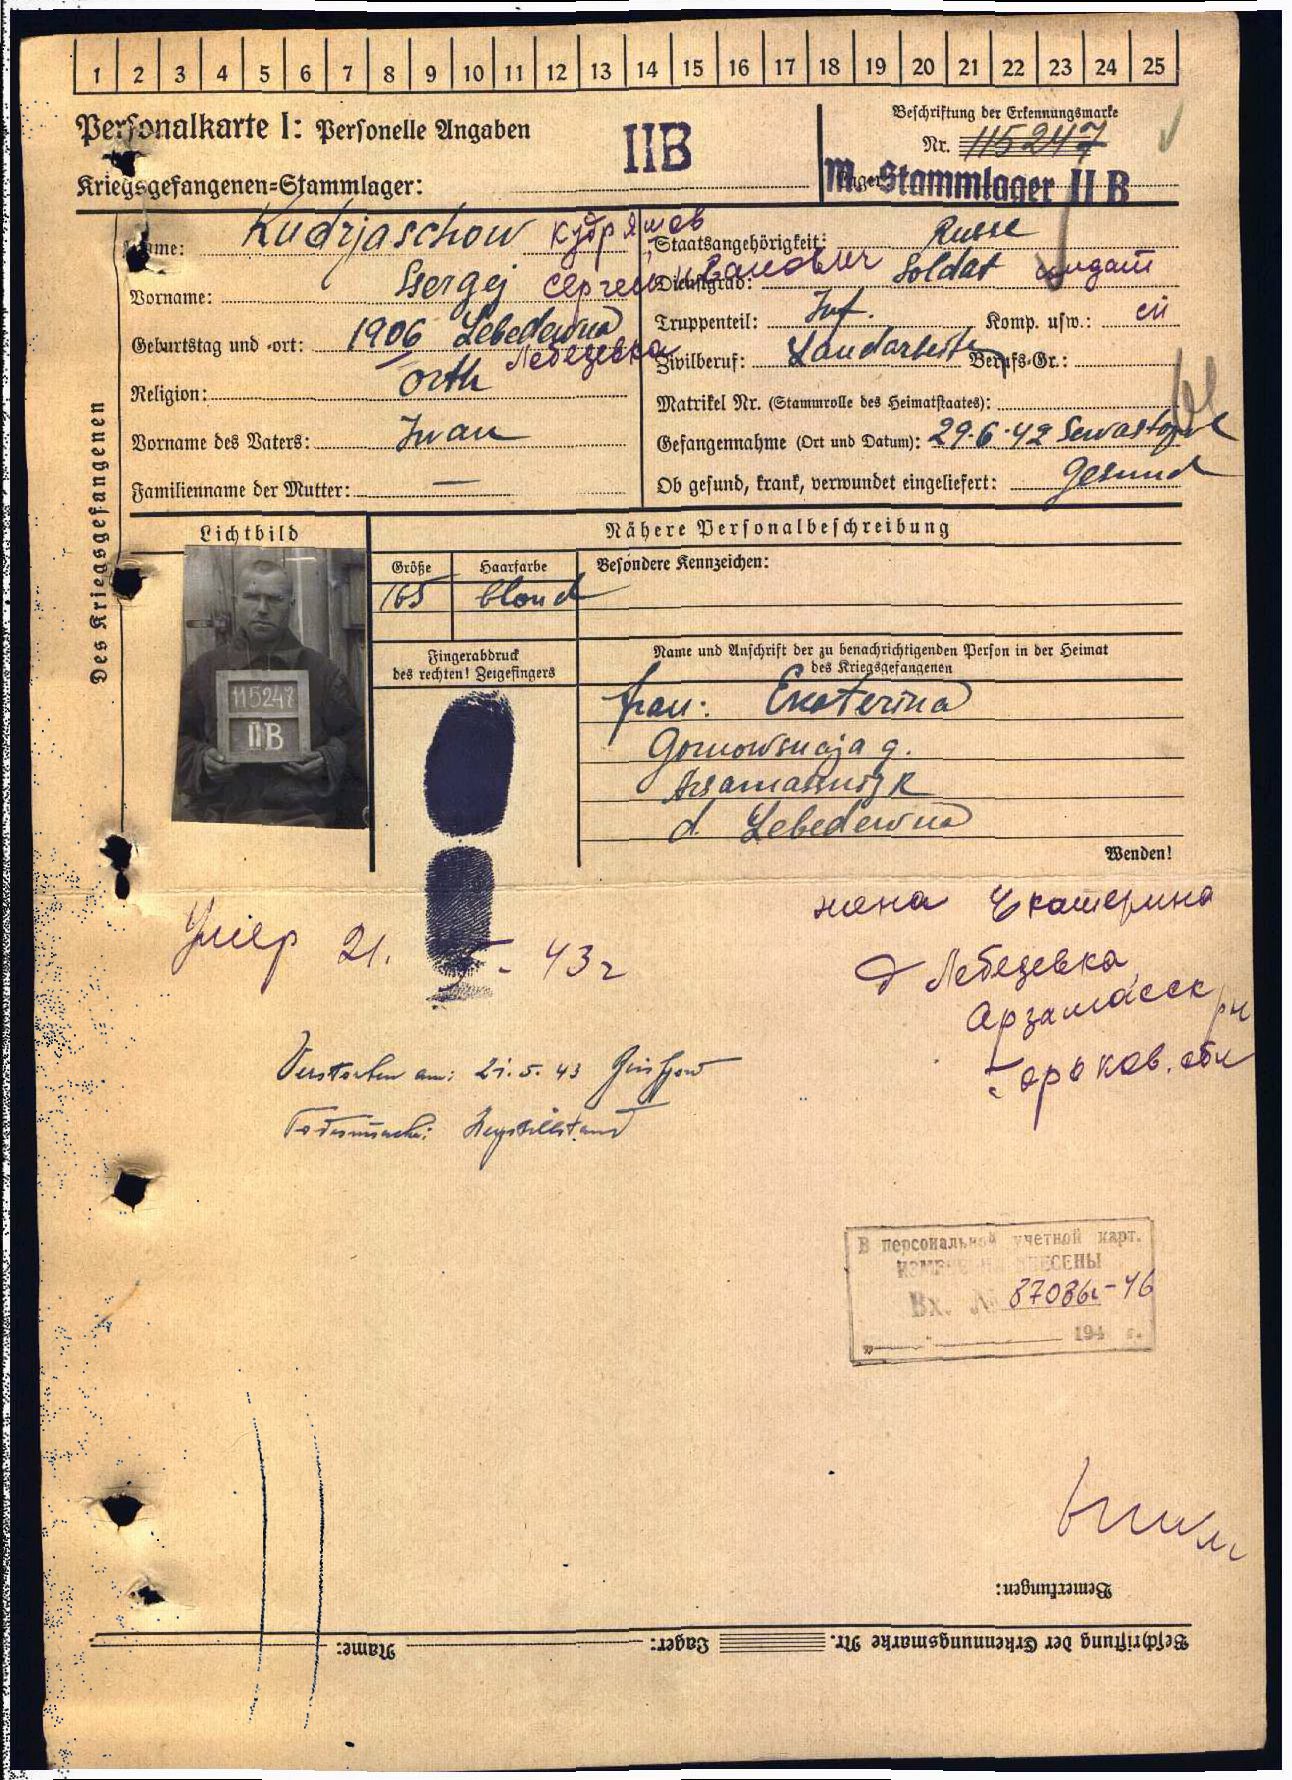 1 2 3 4 5 6 7 8 9 10 11 12 13 14 15 16 17 18 19 20 21 22 23 24 25
Personalkarte I: Personelle Angaben
IIB
Beschriftung der Erkennungsmarke
Nr. 115247
Kriegsgefangenen-Stammlager:
M.-Stammlager II B
Des Kriegsgefangenen
Name: Kudrjaschow Кудряшов
Vorname: Ssergej Сергей Иванович
Geburtstag und -ort: 1906 Lebedewna
Лебедевка
Religion: orth
Vorname des Vaters: Iwan
Familienname der Mutter: —
Staatsangehörigkeit: Russe
Dienstgrad: Soldat солдат
Truppenteil: Inf. Komp. usw.:
Zivilberuf: Landarbeiter Berufs-Gr.:
Matrikel Nr. (Stammrolle des Heimatstaates):
Gefangennahme (Ort und Datum): 29.6.42 Sewastopol
Ob gesund, krank, verwundet eingeliefert: Gesund
Lichtbild
115247
IIB
Nähere Personalbeschreibung
Größe Haarfarbe Besondere Kennzeichen:
165 blond
Fingerabdruck
des rechten! Zeigefingers
Name und Anschrift der zu benachrichtigenden Person in der Heimat
des Kriegsgefangenen
frau: Ekaterina
d. Lebedewna
Wenden!
жена Екатерина
д Лебедевка
Арзамасск рн
Горьков. обл
Умер 21. 43г
Verstorben am: 21.5.43
Todesursache: Herzstillstand
В персональной учетной карт.
ИЗМЕНЕНИЯ ВНЕСЕНЫ
Вх. № -46
194 г.
Bemerkungen:
Beschriftung der Erkennungsmarke Nr. Lager: Name: